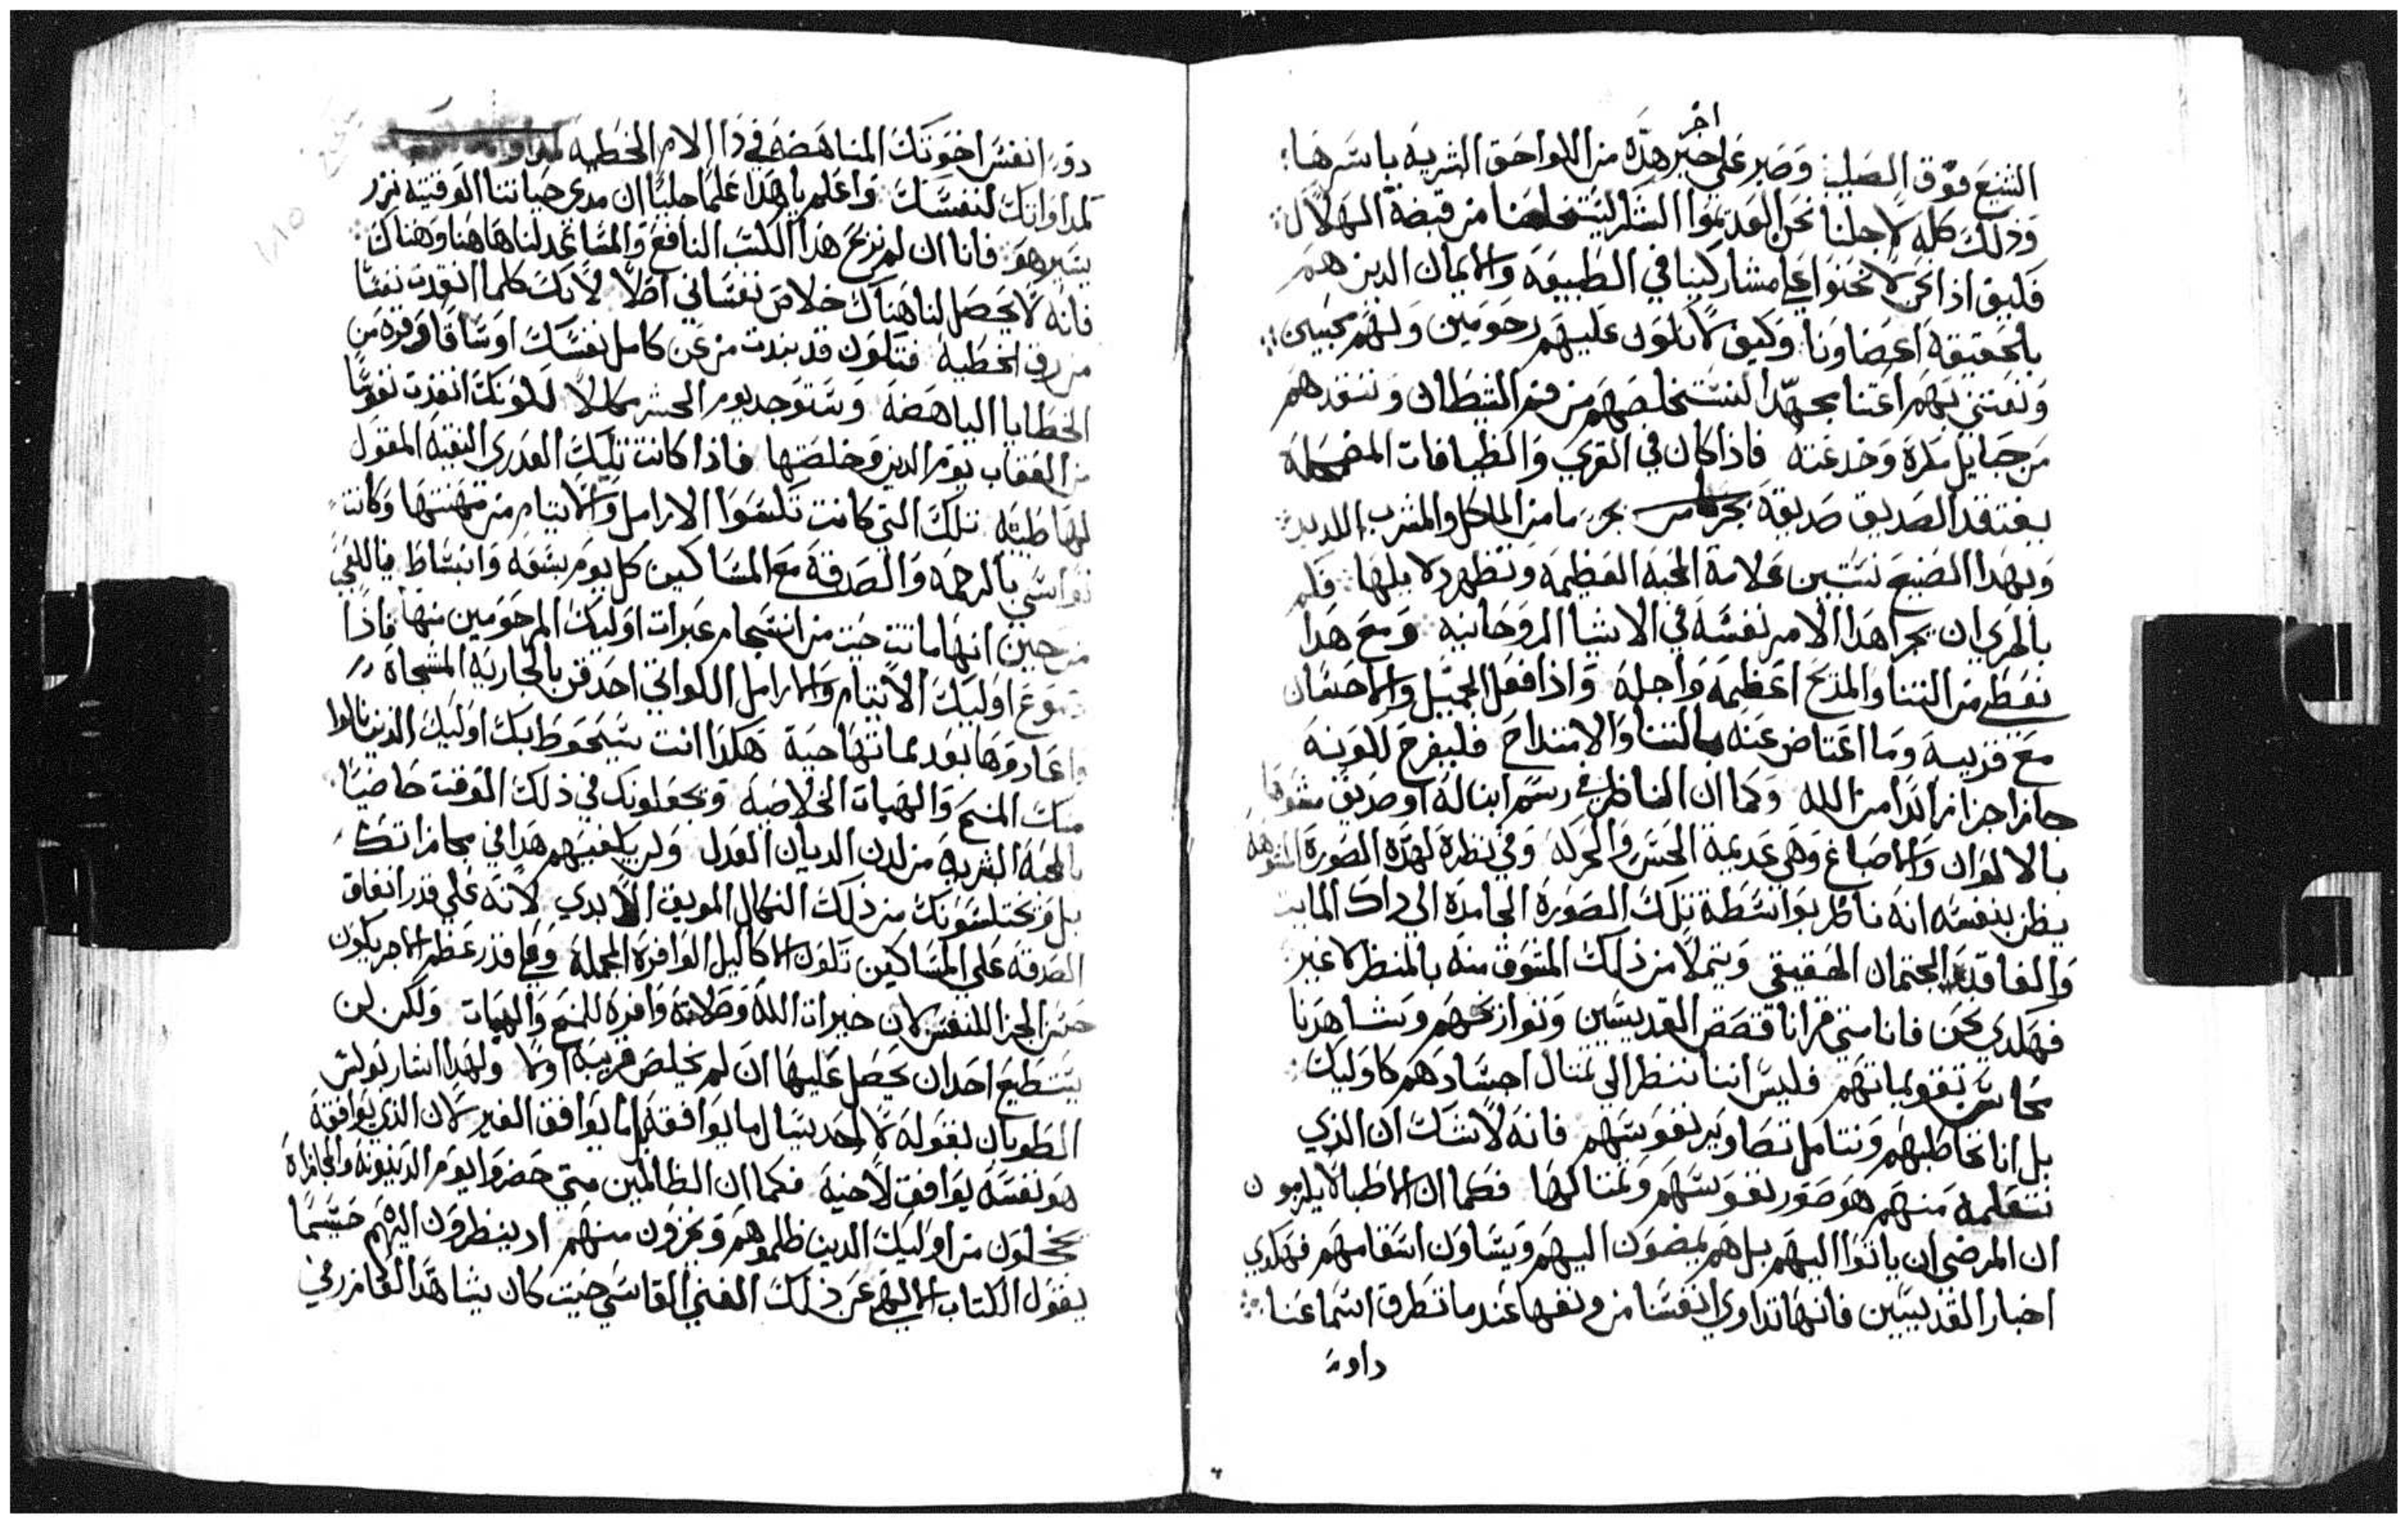 اخر
الشنيع فوق الصليب وصبر على حبر هذه من اللواحق الشريه باسرها
وذلك كله لاجلنا نحن العديموا الشكر ليستخلصنا من قبضة الهلاك
فليق اذا نحن لا نحنوا على مشاركينا في الطبيعه والايمان الدين هم
بالحقيقة اعضاونا وكيف لا نكون عليهم رحومين ولهم محبين
ونعتني بهم اعتنا مجهدا لنستخلصهم من فم الشيطان وننقدهم
من حبايل مكره وخدعته فاذا كان في القري والضيافات
يفتقد الصديق صديقه بجزء ما من الماكل والمشرب اللديد
وبهدا الصنيع تستبين علامة المحبه العظيمه وتظهر دلايلها فكم
بالحري ان يجرا هدا الامر نفسه في الاشيا الروحانيه ومع هدا
نعطى من الثنا والمدح اعظمه واجله واذا فعل الجميل والاحسان
مع قريبه وما اعتاض عنه بالثنا والامتداح فليفرح لكونه
حاز اجزا زائدا من الله وكما ان الناظر في رسم ابنا له او صديق
بالالوان والاصباغ وهي عديمة الحس والحركه وفي نظره لهده الصورة
يظن بنفسه انه ناظر بواسطة تلك الصورة الجامدة الى داك المايت
والفاقد الجتمان الحقيقي ويتملا من ذلك المتشوق منه بالمنظر لا غير
فهكدي نحن فانا متى قرانا قصص القديسين وتواريخهم وشاهدنا
محاسن تقويماتهم فليس اننا ننظر الى تمثال اجسادهم كاوليك
بل انا نخاطبهم ونتامل تصاوير نفوسهم فانه لا شك ان الذي
نتعلمه منهم هو صور نفوسهم وتمثالها فكما ان الاطبا لا يلزمون
ان المرضى ان ياتوا اليهم بل هم يمضون اليهم ويشاون اسقامهم فهكدي
اخبار القديسين فانها تداوي انفسنا من وتفها عند ما تطرق اسماعنا
داو
انفس اخوتك المناهضه في دا الام الخطيه
لمداواتك لنفسك واعلم يا هدا علما جليا ان مدى حياتنا الوقتيه نزر
يسير هو فانا ان لم نربح هدا الكسب النافع والمساعد لنا هاهنا وهناك
فانه لا يحصل لنا هناك خلاص نفساني اصلا لانك كلما انقدت نفسا
من رق الخطيه فتكون قد بندت من عن كامل نفسك اوساقا وفره من
الخطايا الباهضه وستوجد يوم الحشر كاملا لكونك انقذت نفوسا
من العقاب يوم الدين وخلصتها فاذا كانت تليك العدرى النقيه المقول
لها طبيثه تلك التي كانت تكسوا الارامل والايتام من مهنتها وكانت
تواسي بالرحمه والصدقة مع المساكين كل يوم بشوقه وانبساط
من حين انها ماتت حيت من انسجام عبرات اوليك المرحومين منها فاذا
دموع اوليك الايتام والارامل اللواتي احدقن بالجاريه المسجاة
واعادوها بعد مماتها حية هكدا انت سيحوط بك اوليك الذين نالوا
منك المنح والهبات الخلاصيه ويجعلونك في ذلك الوقت حاضيا
بالمحبه الشريه من لدن الديان العدل ولن يكفيهم هدا في مجازاتك
بل ويختلسونك من ذلك النكال الموبق الابدي لانه على قدر انفاق
الصدقه على المساكين تكون الاكاليل الوافرة المجمله وعلى قدر عظم الاجر يكون
حسن الجزا للنفس لان خيرات الله وصلاته وافره للمنح والهبات ولكن لن
يستطيع احد ان يحصل عليها ان لم يخلص قريبه اولا ولهدا اشار بولس
الطوبان بقوله لا احد يسال ما يوافقه بل ما يوافق الغير لان الدي يوافقه
هو نفسه يوافق لاخيه فكما ان الظالمين متى حضروا يوم الدينونه والمجازاة
يخجلون من اوليك الدين ظلموهم ويخزون منهم اد ينظرون اليهم حسبما
يقول الكتاب الالهي عن ذلك الغني القاسي حيث كان يشاهد العازر في